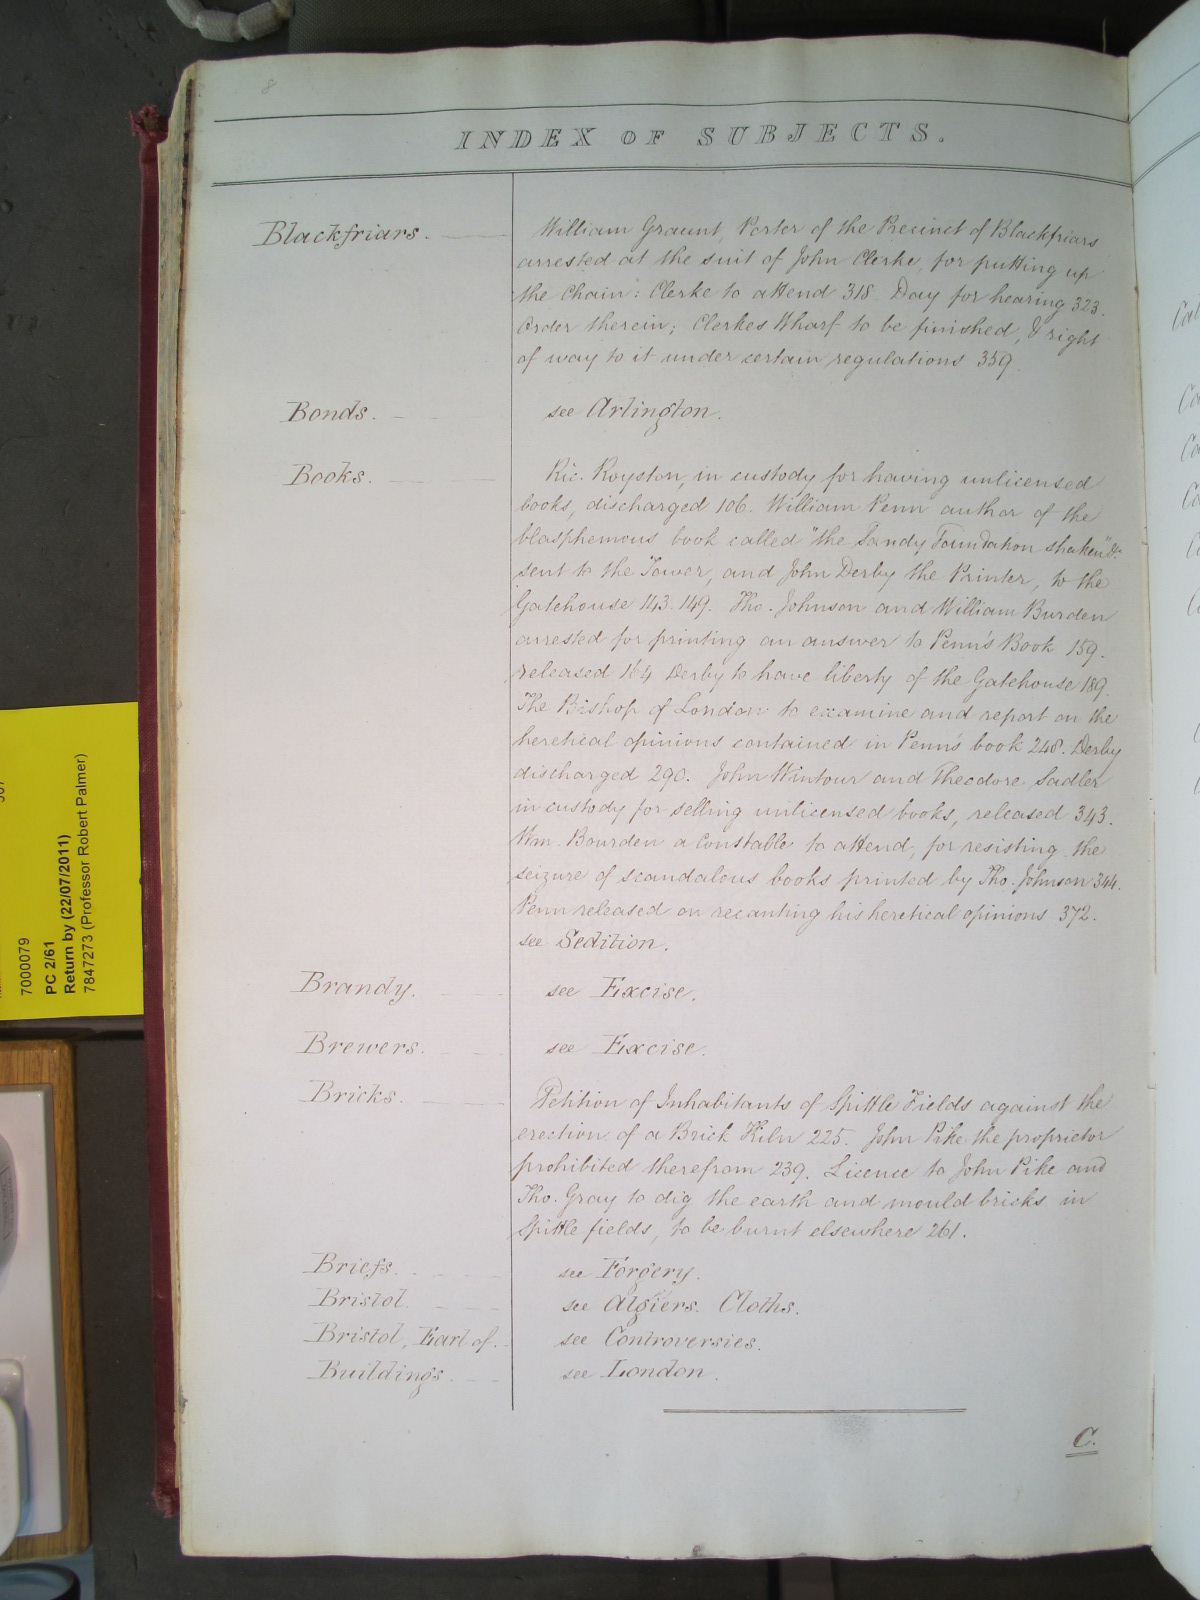 8
INDEX OF SUBJECTS.
Blackfriars. William Graunt, Porter of the Precinct of Blackfriars
arrested at the suit of John Clerke, for putting up
the Chain: Clerke to attend 318. Day for hearing 323.
Order therein; Clerkes Wharf to be finished, & right
of way to it under certain regulations 359.
Bonds. see Arlington.
Books. Ric. Royston, in custody for having unlicensed
books, discharged 106. William Penn author of the
blasphemous book called "the Sandy Foundation shaken" &c
sent to the Tower, and John Derby the Printer, to the
Gatehouse 143. 149. Tho. Johnson and William Burden
arrested for printing an answer to Penn's Book 159.
released 164 Derby to have liberty of the Gatehouse 189.
The Bishop of London to examine and report on the
heretical opinions contained in Penn's book 248. Derby
discharged 290. John Wintour and Theodore Sadler
in custody for selling unlicensed books, released 343.
Wm. Bourden a Constable to attend, for resisting the
seizure of scandalous books printed by Tho. Johnson 344.
Penn released on recanting his heretical opinions 372.
see Sedition.
Brandy. see Excise.
Brewers. see Excise.
Bricks. Petition of Inhabitants of Spittle Fields against the
erection of a Brick Kiln 225. John Pike the proprietor
prohibited therefrom 239. Licence to John Pike and
Tho. Gray to dig the earth and mould bricks in
Spittle fields, to be burnt elsewhere 261.
Briefs. see Forgery.
Bristol. see Algiers. Cloths.
Bristol, Earl of. see Controversies.
Buildings. see London.
C.
7000079
PC 2/61
Return by (22/07/2011)
7847273 (Professor Robert Palmer)